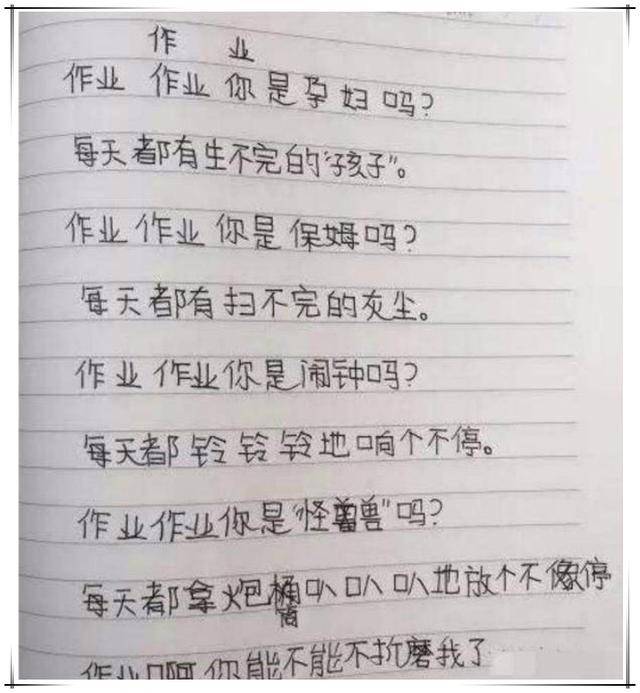 作业
作业 作业 你是孕妇吗?
每天都有生不完的"孩子"。
作业 作业 你是保姆吗?
每天都有扫不完的灰尘。
作业 作业你是闹钟吗?
每天都铃铃铃地响个不停。
作业作业你是"怪兽"吗?
每天都拿炮桶叭叭叭地放个不停
作业啊你能不能不折磨我了